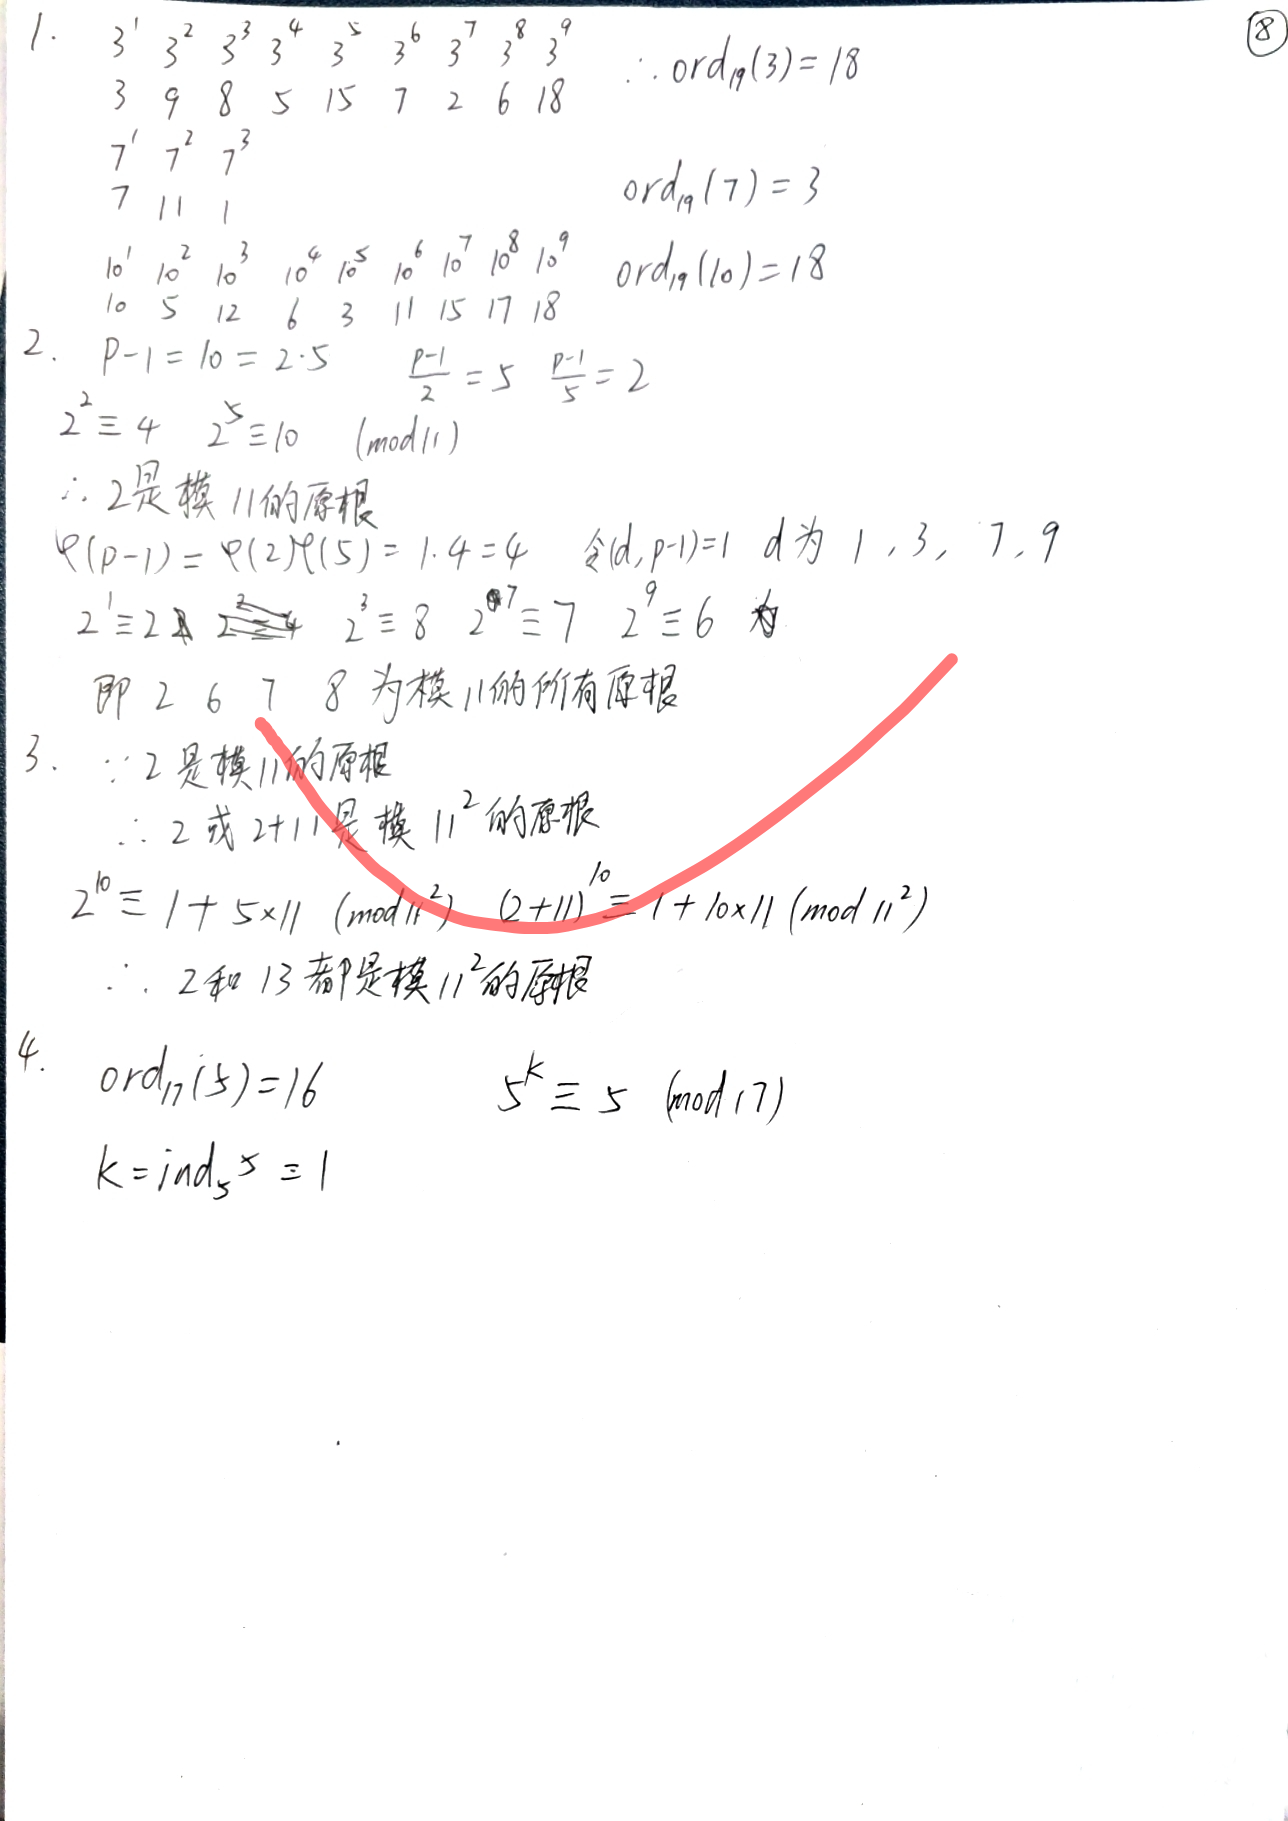 ⑧
1. 3¹ 3² 3³ 3⁴ 3⁵ 3⁶ 3⁷ 3⁸ 3⁹
3 9 8 5 15 7 2 6 18 ∴ord₁₉(3)=18
7¹ 7² 7³
7 11 1 ord₁₉(7)=3
10¹ 10² 10³ 10⁴ 10⁵ 10⁶ 10⁷ 10⁸ 10⁹ ord₁₉(10)=18
10 5 12 6 3 11 15 17 18
2. P-1=10=2·5 (p-1)/2=5 (p-1)/5=2
2²≡4 2⁵≡10 (mod11)
∴2是模11的原根
φ(p-1)=φ(2)φ(5)=1·4=4 令(d,p-1)=1 d为 1,3,7,9
2¹≡2 2³≡8 2⁷≡7 2⁹≡6
即 2 6 7 8 为模11的所有原根
3. ∵2是模11的原根
∴2或2+11是模11²的原根
2¹⁰≡1+5×11 (mod11²) (2+11)¹⁰≡1+10×11(mod 11²)
∴2和13都是模11²的原根
4. ord₁₇(5)=16 5ᵏ≡5 (mod17)
k=ind₅5=1